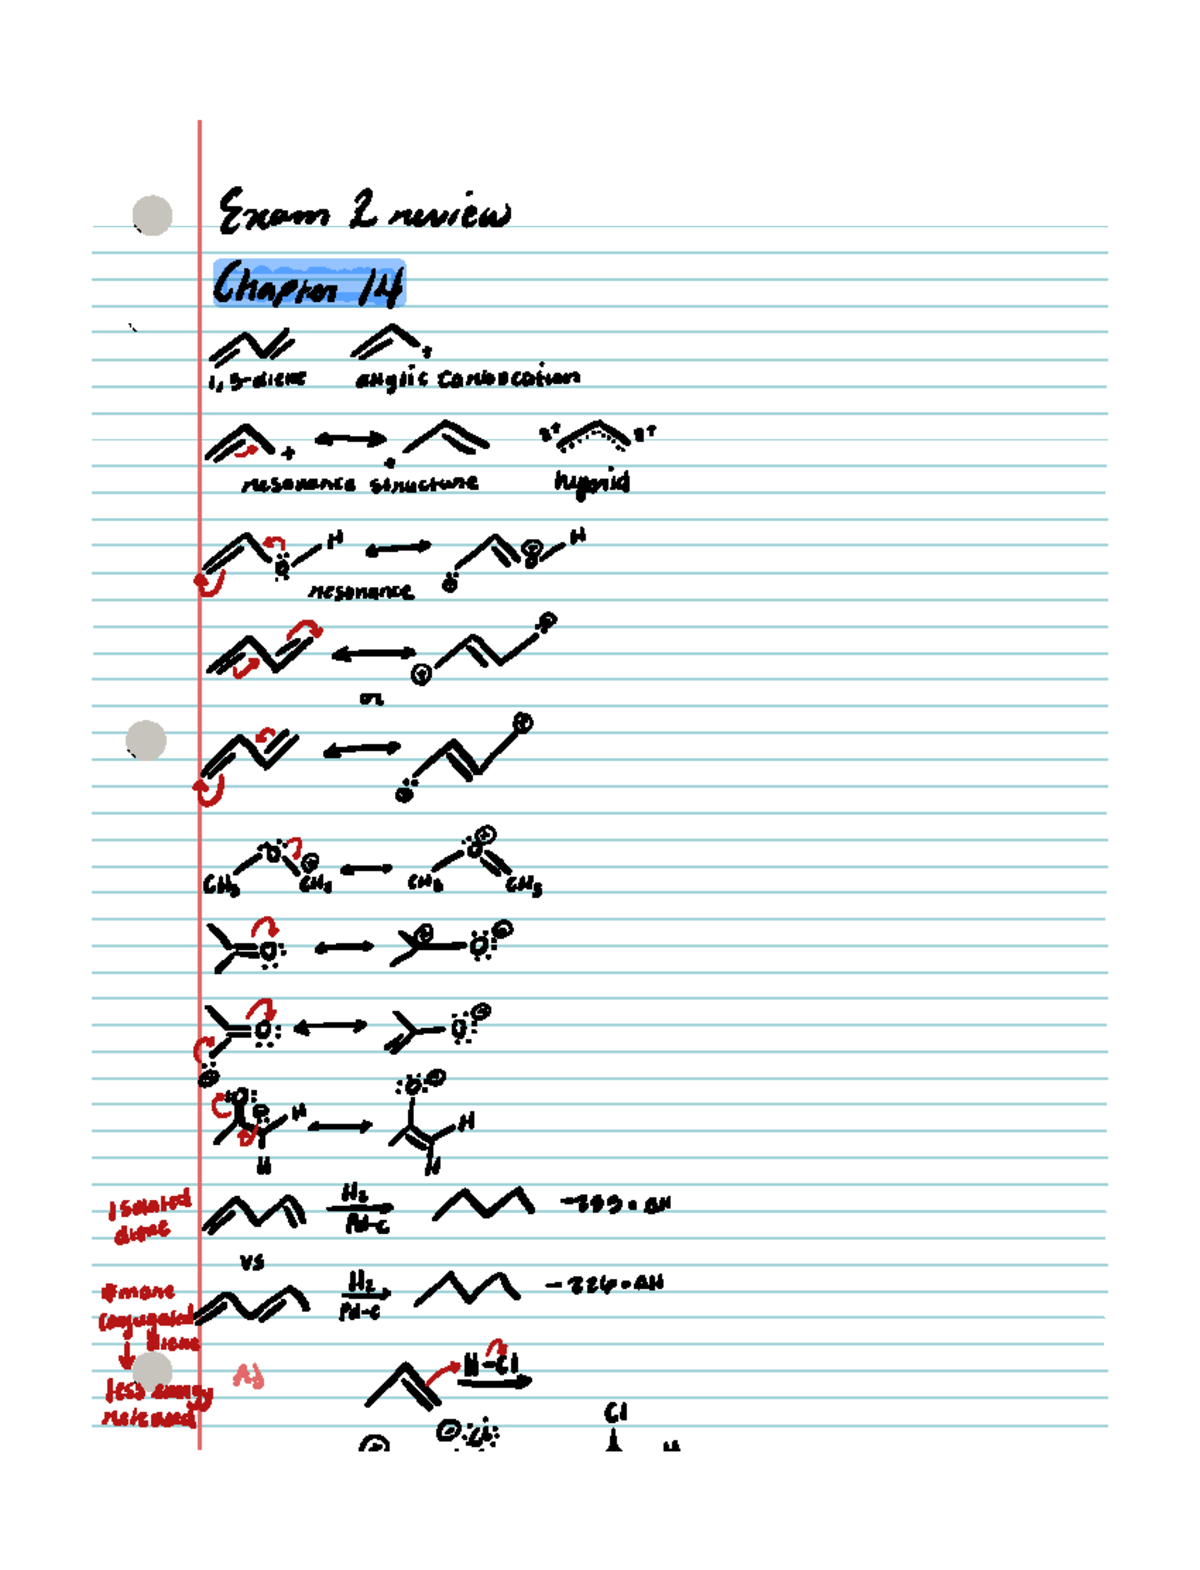 Exam 2 review
Chapter 14
1,3-diene allylic carbocation
+ +
δ+ δ+
resonance structure hybrid
H H
O O
resonance
or
O O
CH3 CH3 CH3 CH3
O O
O O
O O
H H
H H
Isolated diene
H2
Pd-C
ΔH
vs
#more conjugated diene
↓
less energy released
H2
Pd-C
-226 · ΔH
H-Cl
Cl
Cl
H